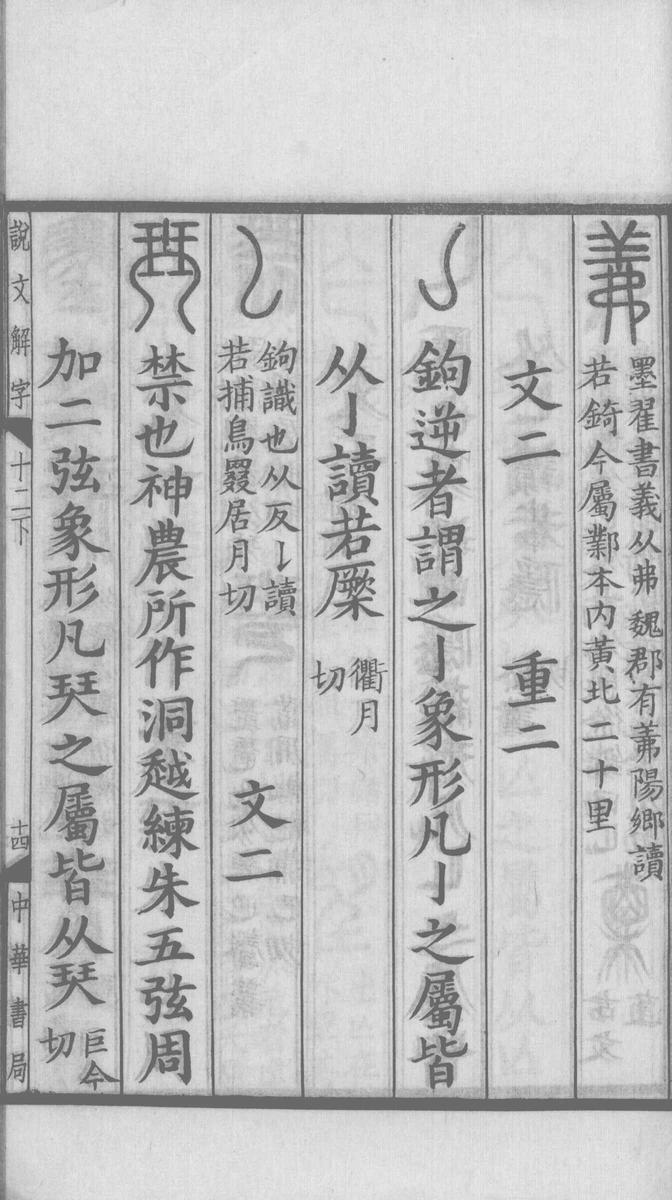 羛
墨翟書義从弗魏郡有羛陽鄉讀
若錡今屬鄴本內黃北二十里
文二 重二
亅 鉤逆者謂之亅象形凡亅之屬皆
从亅讀若橜 衢月
切
𠄌 鉤識也从反亅讀
若捕鳥罬居月切
文二
珡 禁也神農所作洞越練朱五弦周
加二弦象形凡珡之屬皆从珡 巨今
切
說文解字 十二下 十四 中華書局